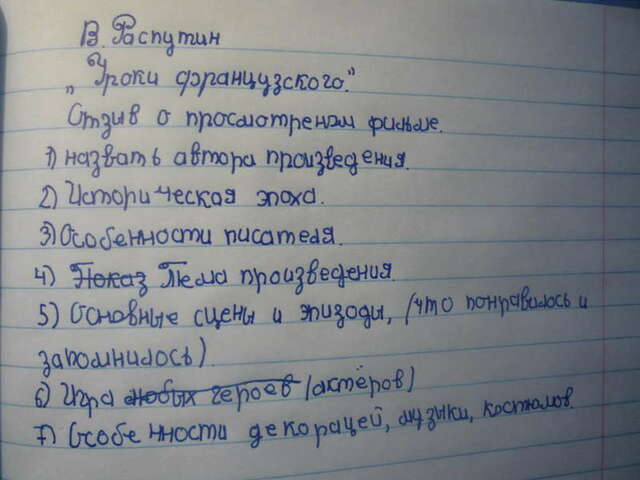 В. Распутин
„Уроки французского."
Отзив о просмотреном фильме.
1) назвать автора произведения.
2) Историческая эпоха.
3) Особенности писателя.
4) Показ Тема произведения.
5) Основные сцены и эпизоды, (что понравилось и
запомнилось).
6) Игра новых героев (актёров)
7) Особенности декорацей, музыки, костюмов.